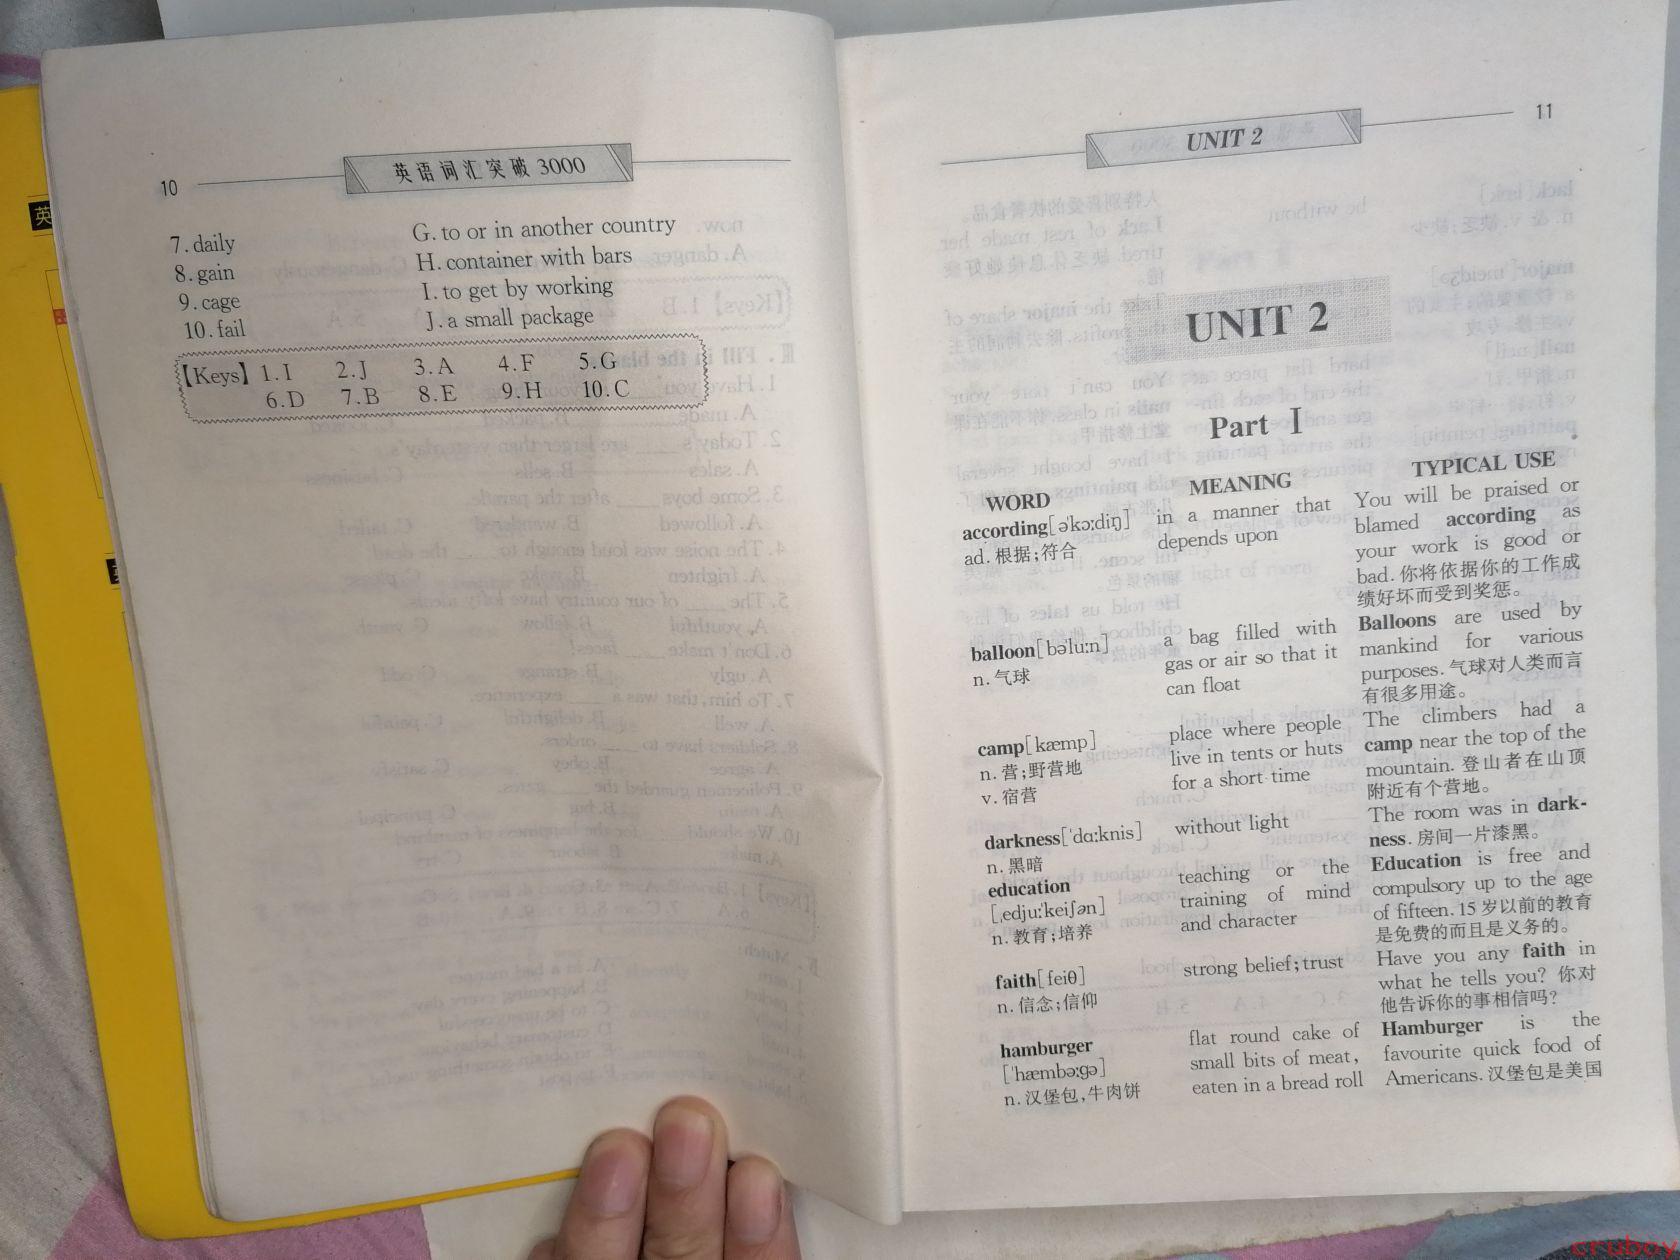 10
英语词汇突破 3000
7. daily
8. gain
9. cage
10. fail
G. to or in another country
H. container with bars
I. to get by working
J. a small package
【Keys】 1. I 2. J 3. A 4. F 5. G
6. D 7. B 8. E 9. H 10. C
UNIT 2
11
UNIT 2
Part Ⅰ
WORD
MEANING
TYPICAL USE
according[ə'kɔ:diŋ]
ad. 根据;符合
in a manner that
depends upon
You will be praised or
blamed according as
your work is good or
bad. 你将依据你的工作成
绩好坏而受到奖惩。
balloon[bəlu:n]
n. 气球
a bag filled with
gas or air so that it
can float
Balloons are used by
mankind for various
purposes. 气球对人类而言
有很多用途。
camp[kæmp]
n. 营;野营地
v. 宿营
place where people
live in tents or huts
for a short time
The climbers had a
camp near the top of the
mountain. 登山者在山顶
附近有个营地。
darkness['dɑ:knis]
n. 黑暗
without light
The room was in dark-
ness. 房间一片漆黑。
education
[ˌedju:'keiʃən]
n. 教育;培养
teaching or the
training of mind
and character
Education is free and
compulsory up to the age
of fifteen. 15岁以前的教育
是免费的而且是义务的。
faith[feiθ]
n. 信念;信仰
strong belief;trust
Have you any faith in
what he tells you? 你对
他告诉你的事相信吗?
hamburger
['hæmbə:gə]
n. 汉堡包,牛肉饼
flat round cake of
small bits of meat,
eaten in a bread roll
Hamburger is the
favourite quick food of
Americans. 汉堡包是美国